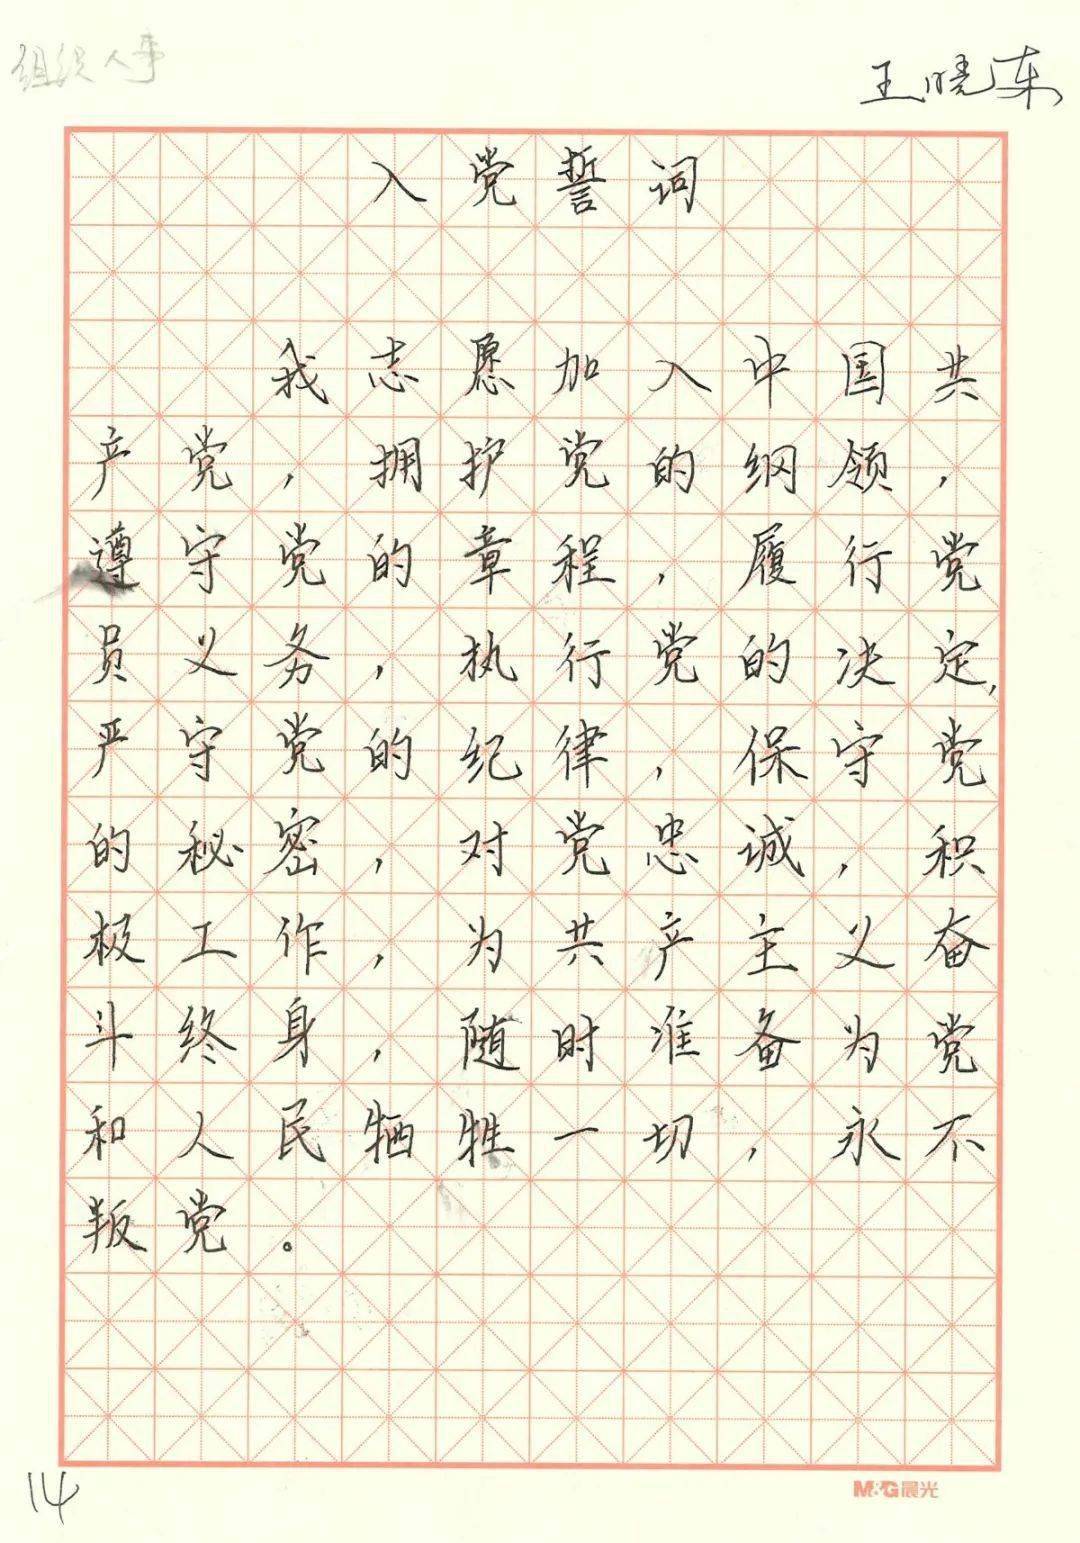 组织人事
王晓东
入党誓词
我志愿加入中国共
产党，拥护党的纲领，
遵守党的章程，履行党
员义务，执行党的决定，
严守党的纪律，保守党
的秘密，对党忠诚，积
极工作，为共产主义奋
斗终身，随时准备为党
和人民牺牲一切，永不
叛党。
14
M&G晨光